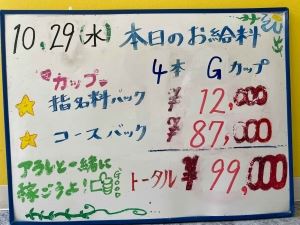 10.29(水) 本日のお給料
カップ 4本 Gカップ
指名料バック ¥12,000
コースバック ¥87,000
トータル ¥99,000
アラレと一緒に
稼ごうよ!
GOOD